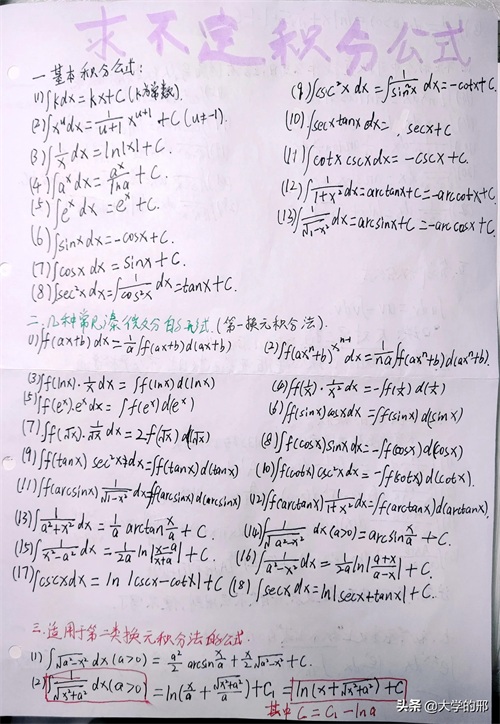 求不定积分公式
一.基本积分公式:
(1)∫kdx=kx+C(k为常数).
(2)∫x^u dx=1/(u+1) x^(u+1)+C(u≠-1).
(3)∫1/x dx=ln|x|+C.
(4)∫a^x dx=a^x/lna+C.
(5)∫e^x dx=e^x+C.
(6)∫sinxdx=-cosx+C.
(7)∫cosxdx=sinx+C.
(8)∫sec²xdx=∫1/cos²x dx=tanx+C.
(9)∫csc²xdx=∫1/sin²x dx=-cotx+C.
(10)∫secxtanxdx=secx+C
(11)∫cotxcscxdx=-cscx+C.
(12)∫1/(1+x²)dx=arctanx+C=-arccotx+C.
(13)∫1/√(1-x²)dx=arcsinx+C=-arccosx+C.
二.几种常见凑微分的形式.(第一换元积分法).
(1)∫f(ax+b)dx=1/a∫f(ax+b)d(ax+b)
(2)∫f(ax^n+b)x^(n-1)dx=1/(na)∫f(ax^n+b)d(ax^n+b).
(3)∫f(lnx)·1/x dx=∫f(lnx)d(lnx)
(4)∫f(1/x)·1/x² dx=-∫f(1/x)d(1/x)
(5)∫f(e^x)·e^x dx=∫f(e^x)d(e^x)
(6)∫f(sinx)cosxdx=∫f(sinx)d(sinx)
(7)∫f(√x)·1/√x dx=2∫f(√x)d(√x)
(8)∫f(cosx)sinxdx=-∫f(cosx)d(cosx)
(9)∫f(tanx)sec²xdx=∫f(tanx)d(tanx)
(10)∫f(cotx)csc²xdx=-∫f(cotx)d(cotx).
(11)∫f(arcsinx)1/√(1-x²)dx=∫f(arcsinx)d(arcsinx)
(12)∫f(arctanx)1/(1+x²)dx=∫f(arctanx)d(arctanx).
(13)∫1/(a²+x²)dx=1/a arctan x/a+C.
(14)∫1/√(a²-x²)dx(a>0)=arcsin x/a+C.
(15)∫1/(x²-a²)dx=1/2a ln|(x-a)/(x+a)|+C.
(16)∫1/(a²-x²)dx=1/2a ln|(a+x)/(a-x)|+C.
(17)∫cscxdx=ln|cscx-cotx|+C
(18)∫secxdx=ln|secx+tanx|+C.
三.适用于第二类换元积分法的公式.
(1)∫√(a²-x²)dx(a>0)=a²/2 arcsin x/a+x/2√(a²-x²)+C.
(2)∫1/√(x²+a²)dx(a>0)=ln(x/a+√(x²+a²)/a)+C₁=ln(x+√(x²+a²))+C
其中C=C₁-lna
头条 @大学的邢